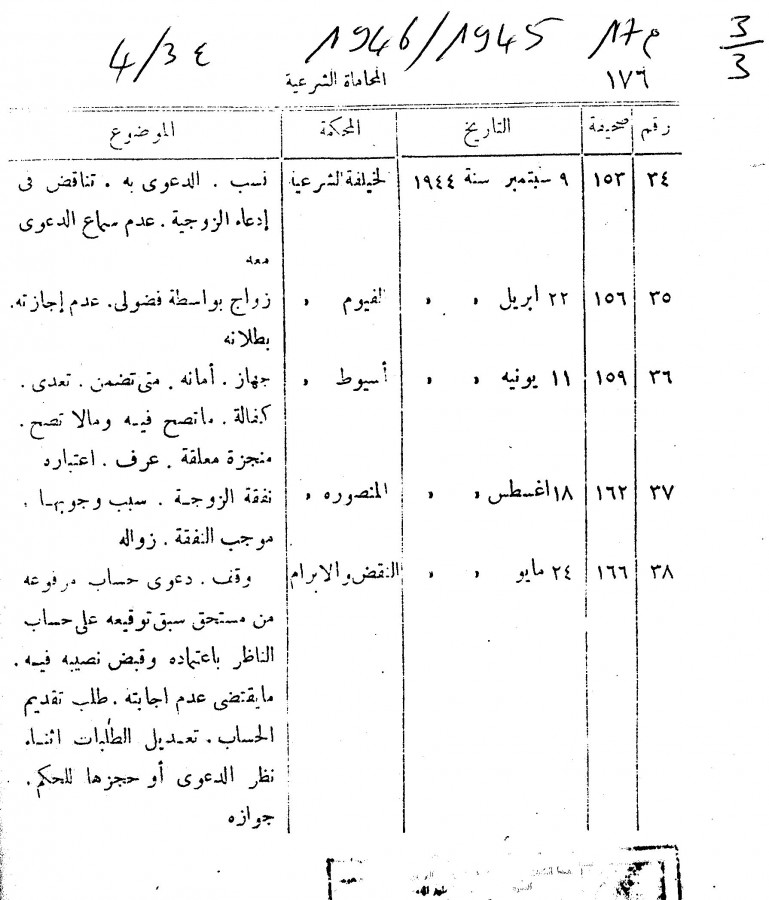 3/3
م 17
1946/1945
4/3 ع
١٧٦
المحاماة الشرعية
رقم صحيفة التاريخ المحكمة الموضوع
٣٤ ١٥٣ ٩ سبتمبر سنة ١٩٤٤ الخليفة الشرعية نسب . الدعوى به . تناقض فى
إدعاء الزوجية . عدم سماع الدعوى
معه
٣٥ ١٥٦ ٢٢ ابريل » » الفيوم » زواج بواسطة فضولى . عدم إجازته .
بطلانه
٣٦ ١٥٩ ١١ يونيه » » أسيوط » جهاز . أمانه . متى تضمن . تعدى .
كفالة . ماتصح فيه ومالا تصح .
منجزة معلقة . عرف . اعتباره
٣٧ ١٦٢ ١٨ اغسطس » » المنصوره » نفقة الزوجة . سبب وجوبها .
موجب النفقة . زواله
٣٨ ١٦٦ ٢٤ مايو » » النقض والابرام وقف . دعوى حساب مرفوعه
من مستحق سبق توقيعه على حساب
الناظر باعتماده وقبض نصيبه فيه .
مايقتضى عدم اجابته . طلب تقديم
الحساب . تعديل الطلبات اثناء
نظر الدعوى أو حجزها للحكم .
جوازه